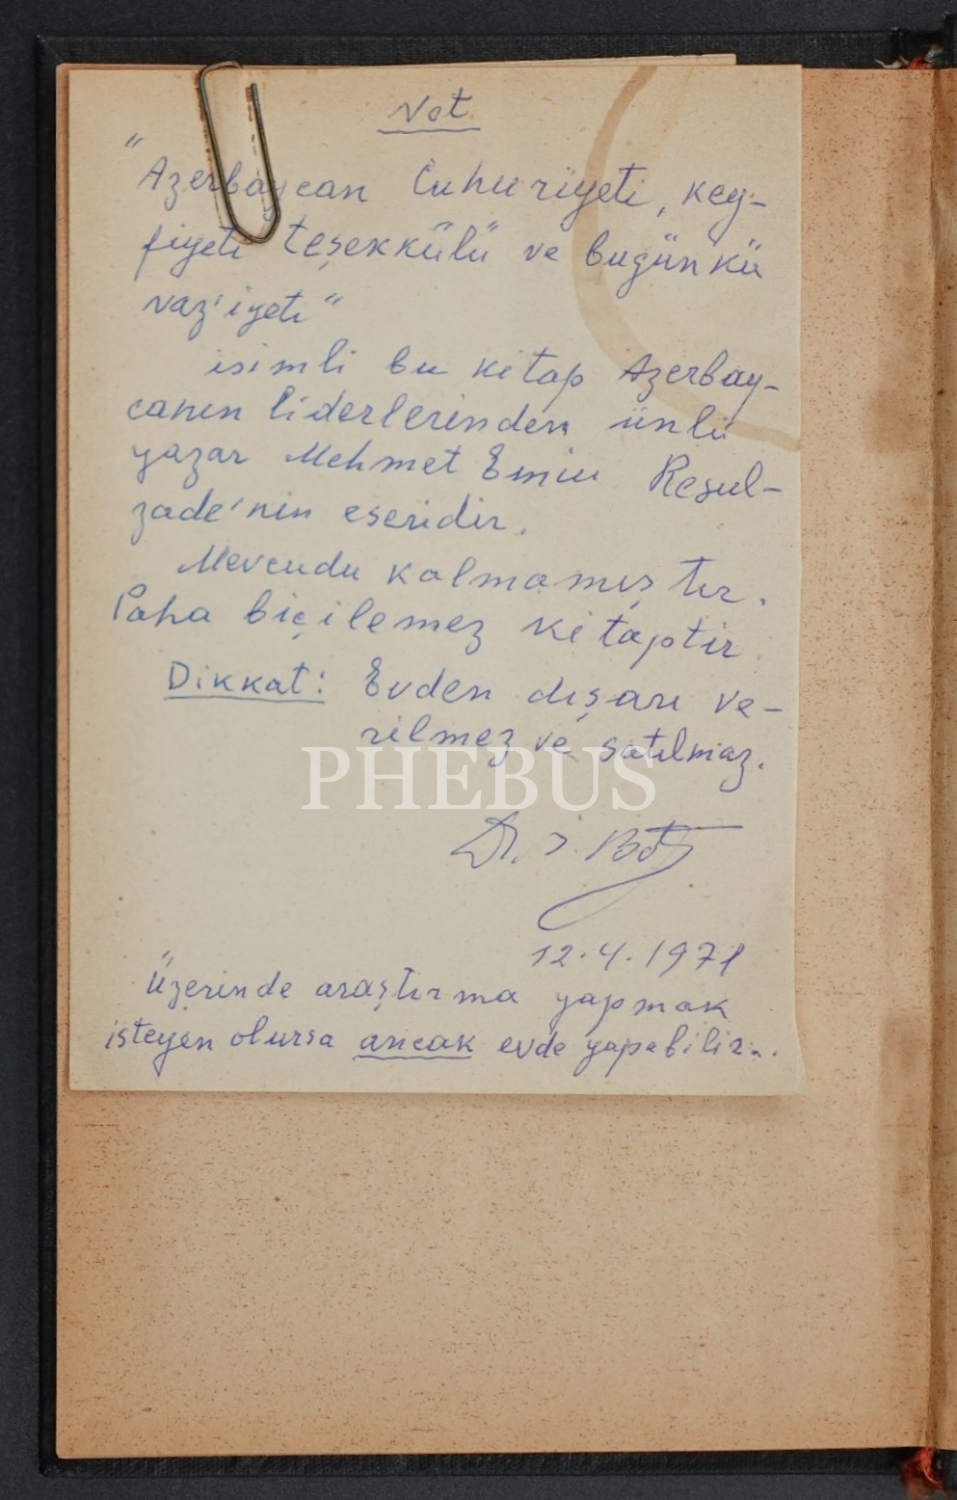 Not
"Azerbaycan Cuhuriyeti, key-
fiyeti teşekkülü ve bugünkü
vaz'iyeti"
isimli bu kitap Azerbay-
canın liderlerinden ünlü
yazar Mehmet Emin Resul-
zade'nin eseridir.
Mevcudu kalmamıştır.
Paha biçilemez kitaptir
Dikkat: Evden dışarı ve-
rilmez ve satılmaz.
PHEBUS
Dr.
12.4.1971
Üzerinde araştırma yapmak
isteyen olursa ancak evde yapabilir..